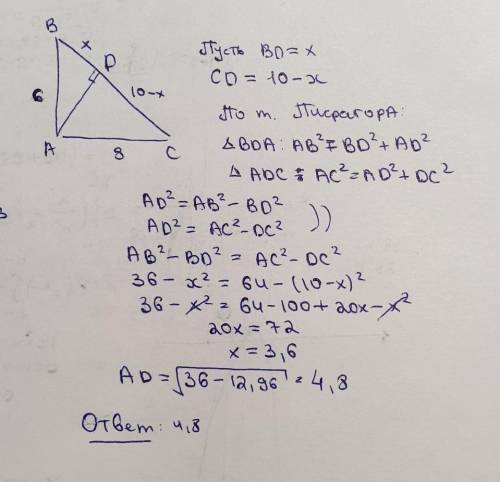 B
x
D
6
10-x
A
8
C
Пусть BD = x
CD = 10-x
По т. Пифагора:
△BDA: AB² = BD² + AD²
△ADC: AC² = AD² + DC²
AD² = AB² - BD²
AD² = AC² - DC²
AB² - BD² = AC² - DC²
36 - x² = 64 - (10-x)²
36 - x² = 64 - 100 + 20x - x²
20x = 72
x = 3,6
AD = √36 - 12,96 = 4,8
Ответ: 4,8